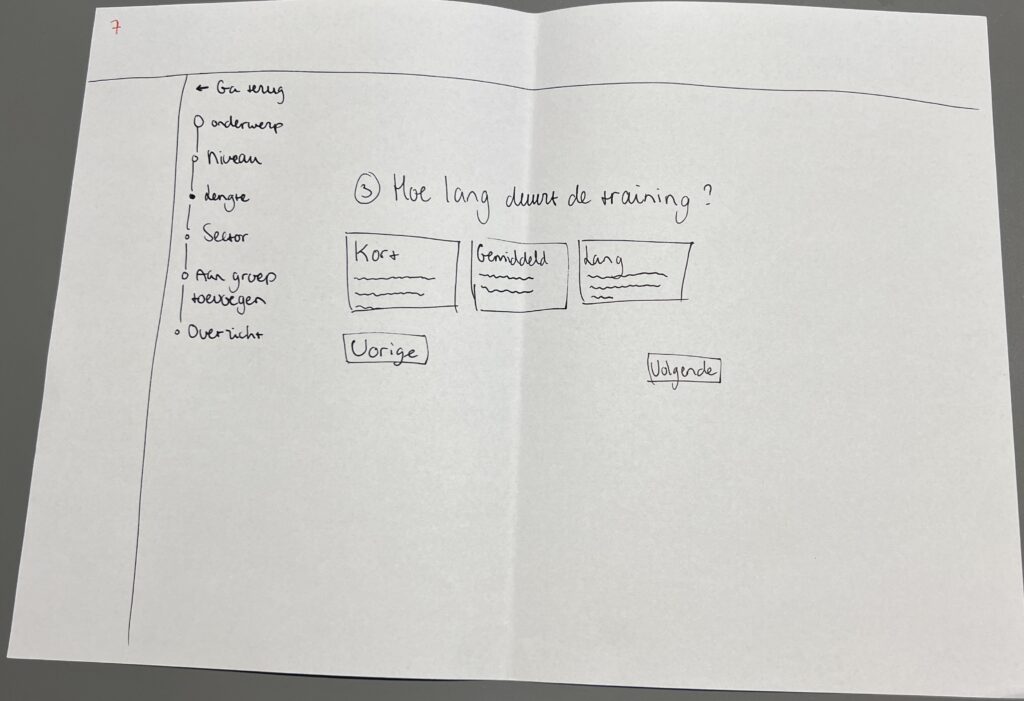 7
← Ga terug
onderwerp
Niveau
Lengte
Sector
Aan groep
toevoegen
Overzicht
③ Hoe lang duurt de training?
Kort
Gemiddeld
Lang
Vorige
Volgende